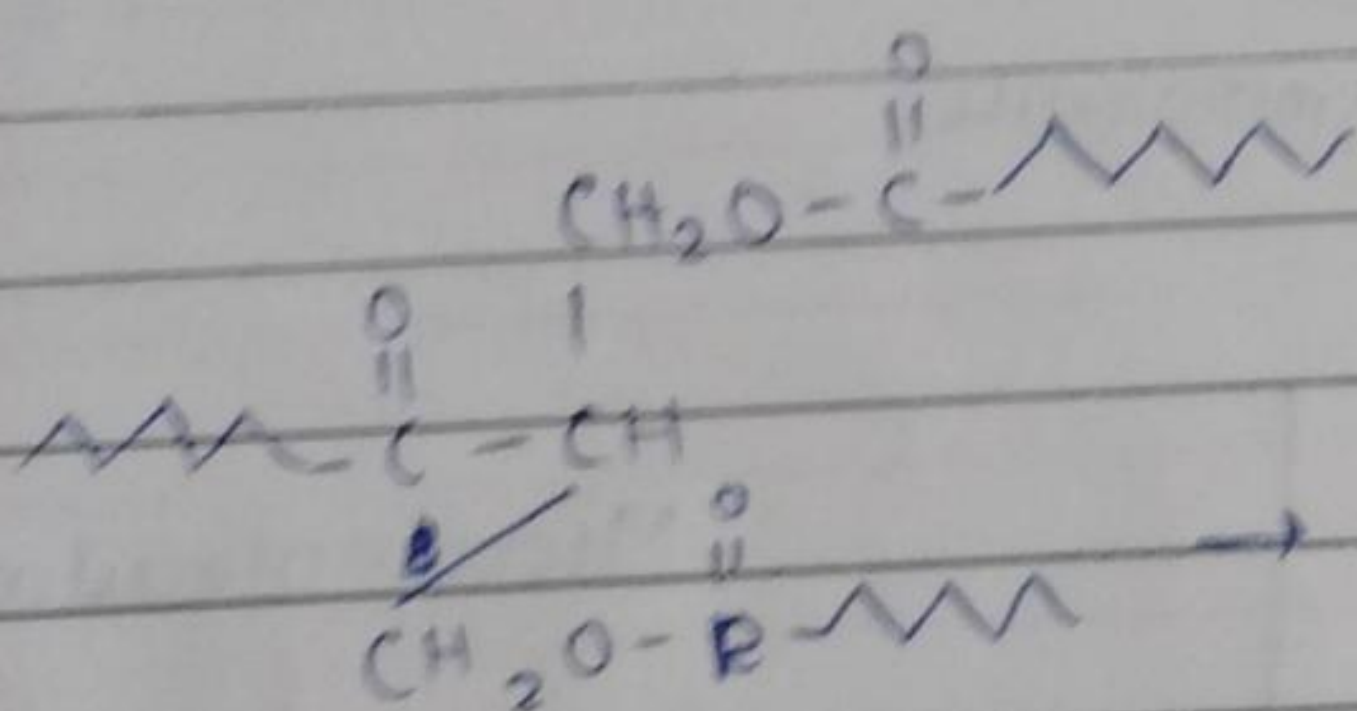 O
||
CH₂O - C -
O |
||
C - CH
O
||
CH₂O -
→